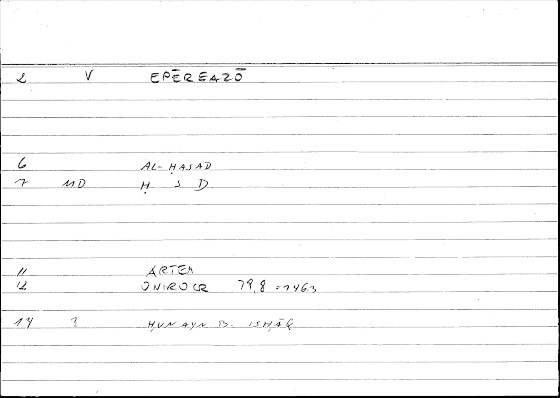 2 V EPĒREAZŌ
6 AL-ḤASAD
7 MD Ḥ S D
11 ARTEM
12 ONIROCR 79,8 = 1463
14 ? ḤUNAYN B. ISḤĀQ